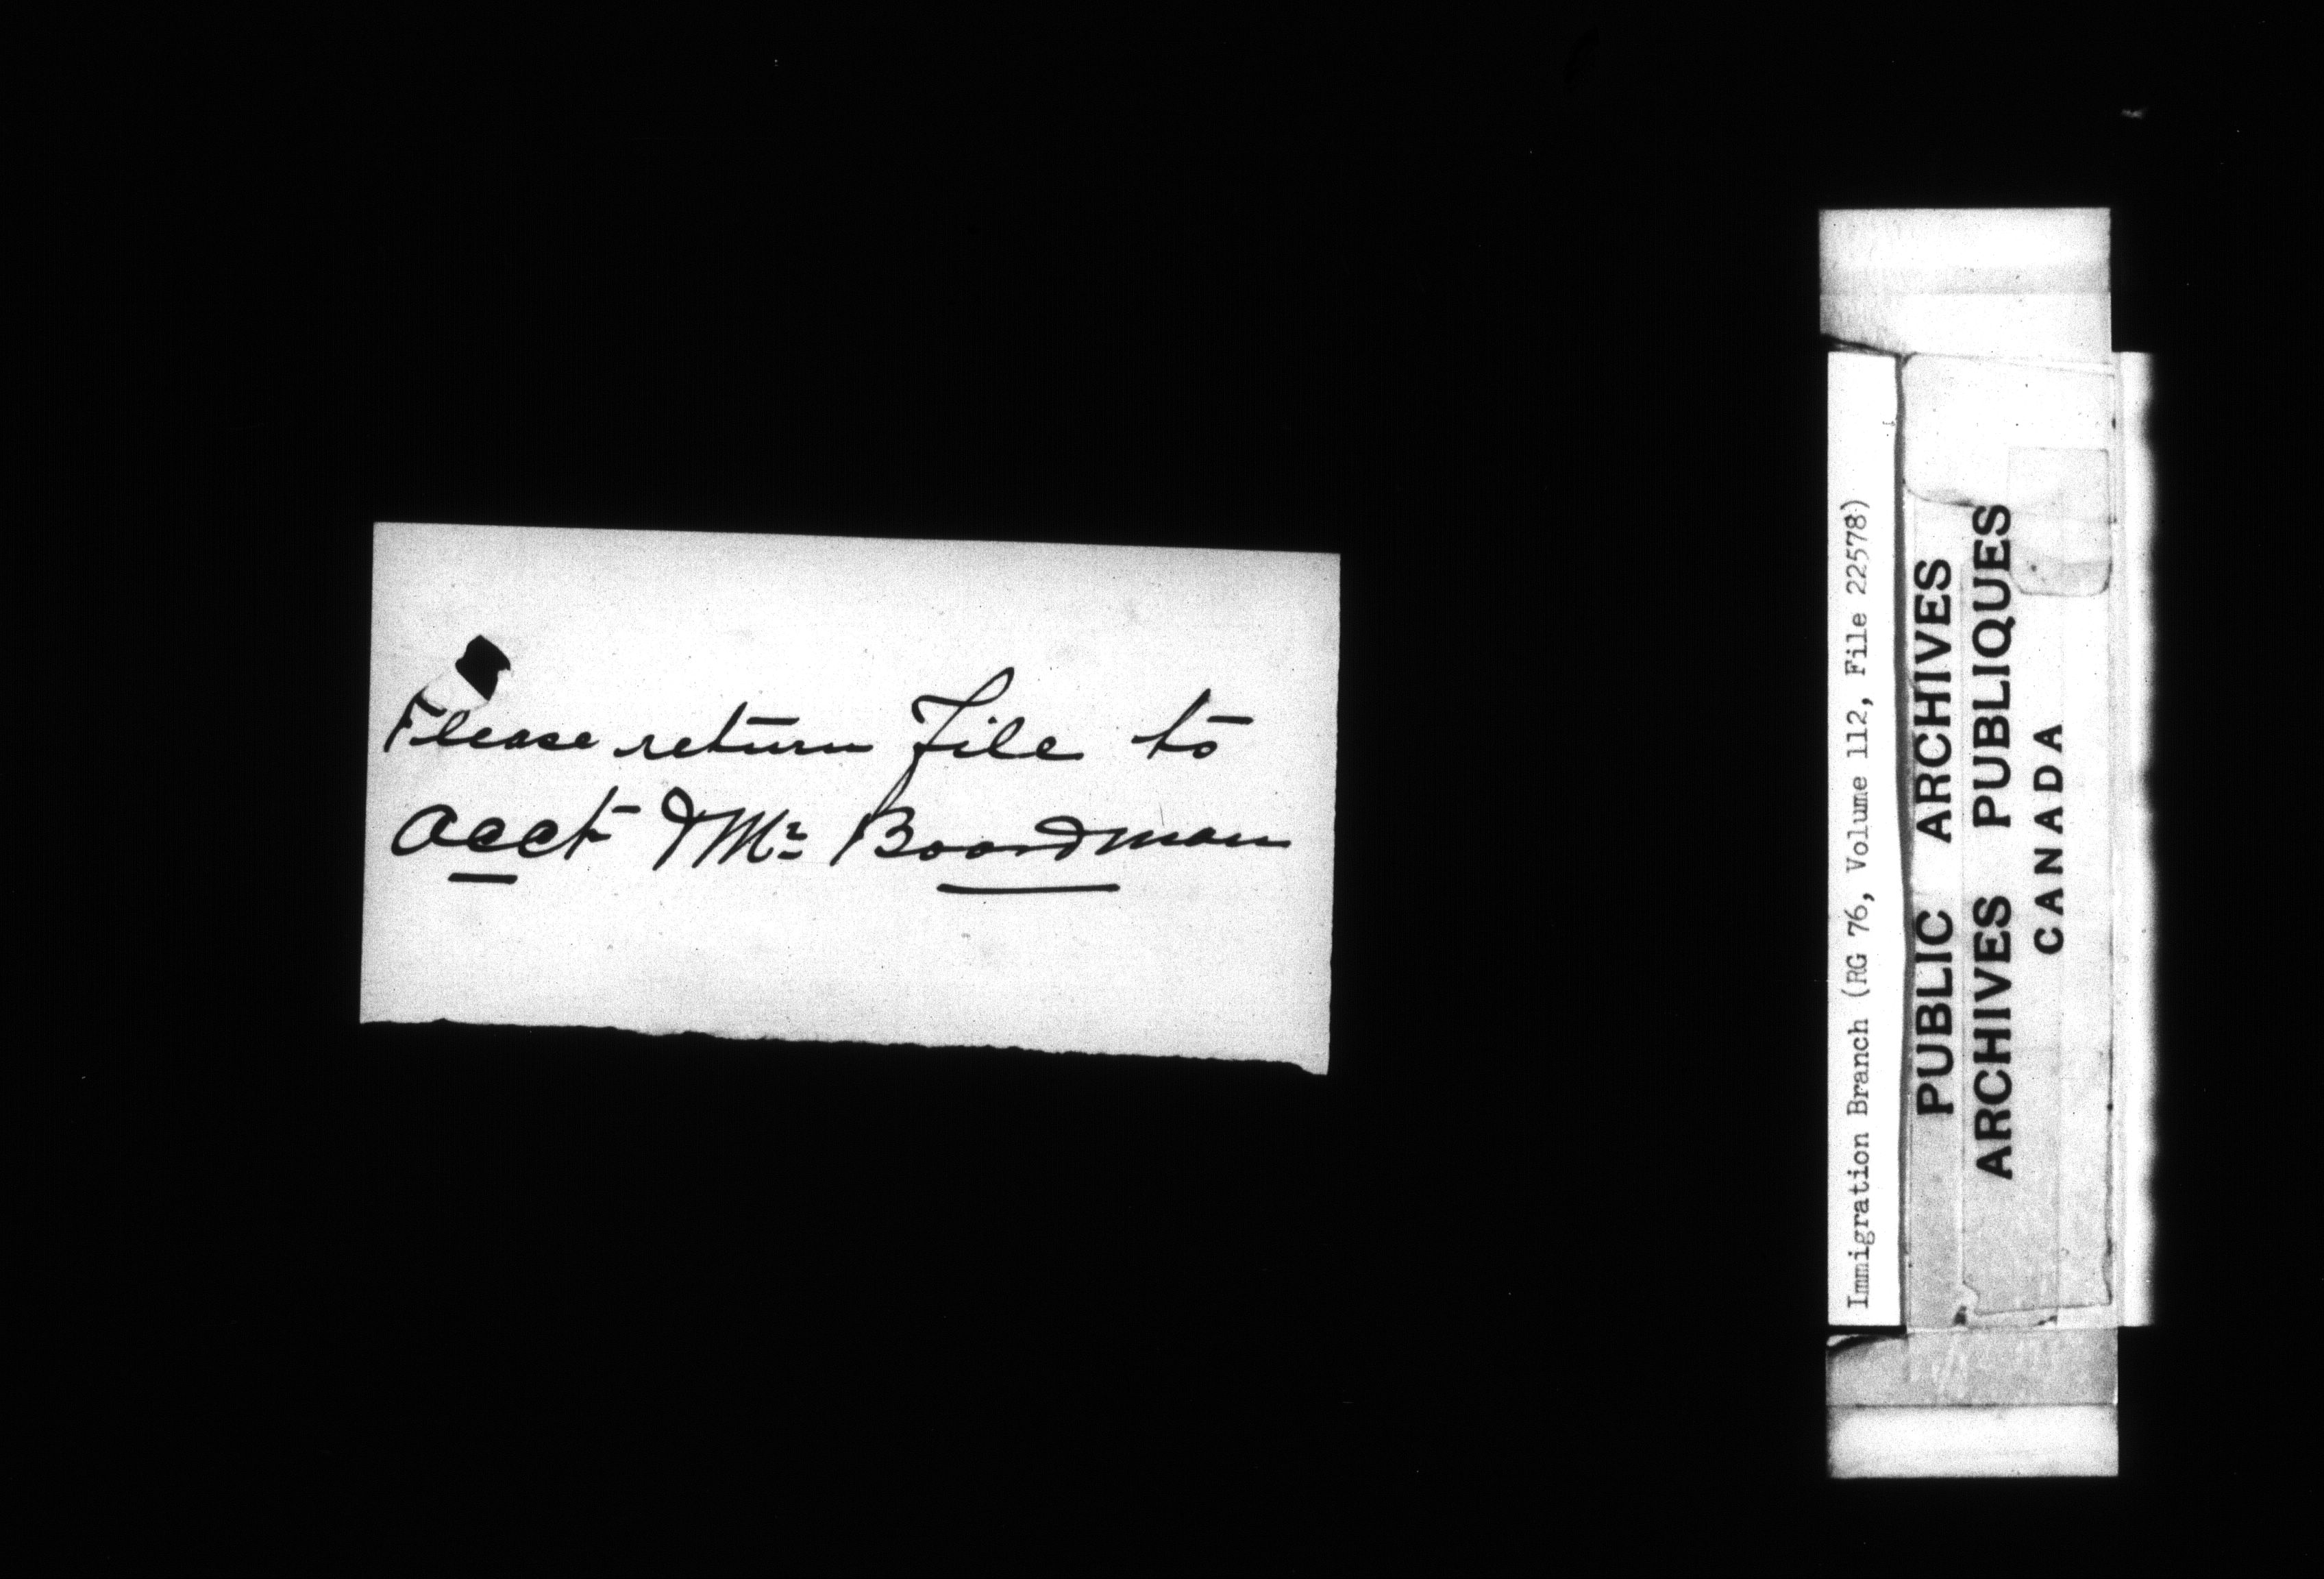 Please return File to
Acct Mr Boardman
Immigration Branch (RG 76, Volume 112, File 22578)
PUBLIC ARCHIVES
ARCHIVES PUBLIQUES
CANADA